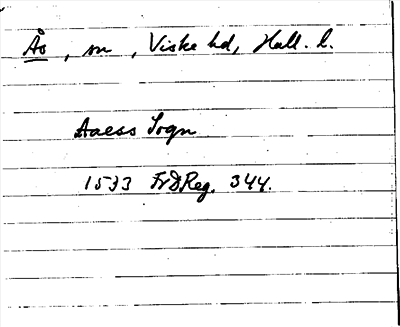 Ås, sn, Viske hd, Hall. l.
Aaess Sogn
1533 FrDReg. 344.